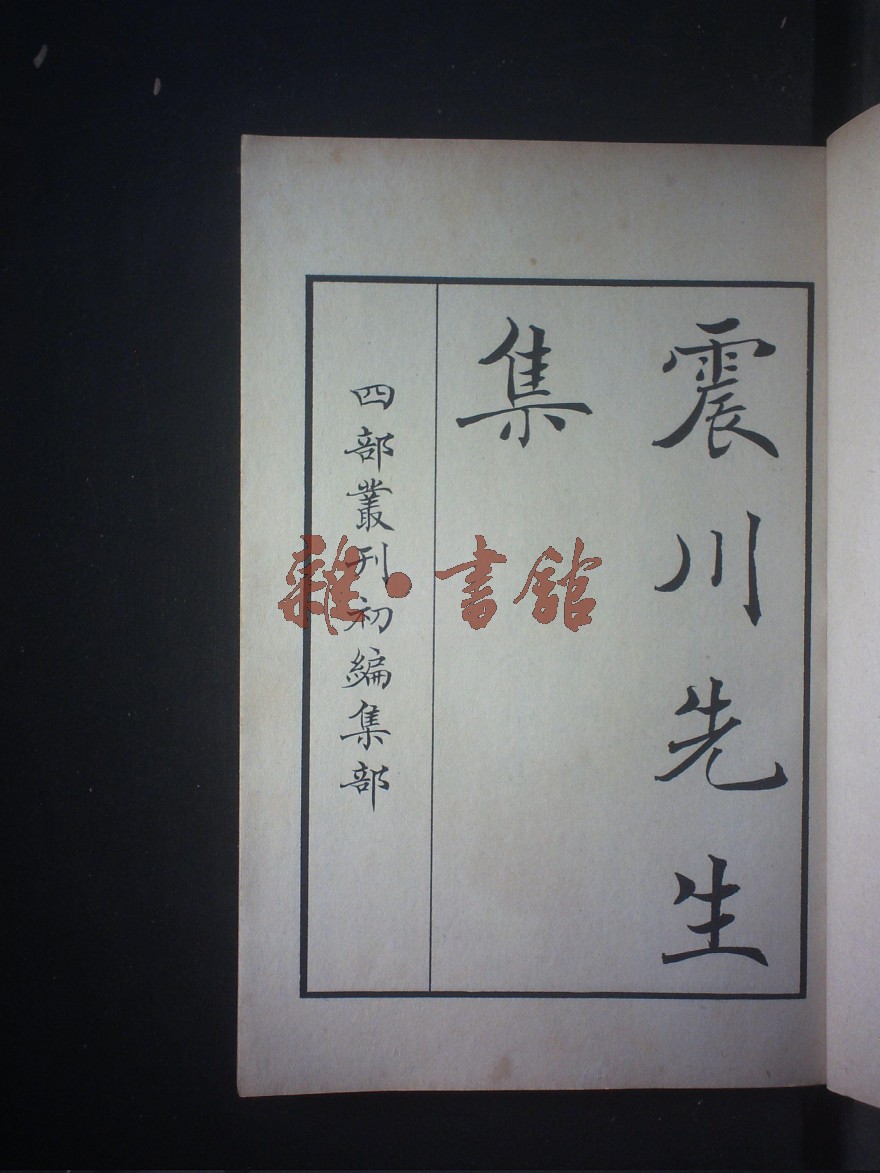 震川先生
集
四部叢刊初編集部
雜·書館